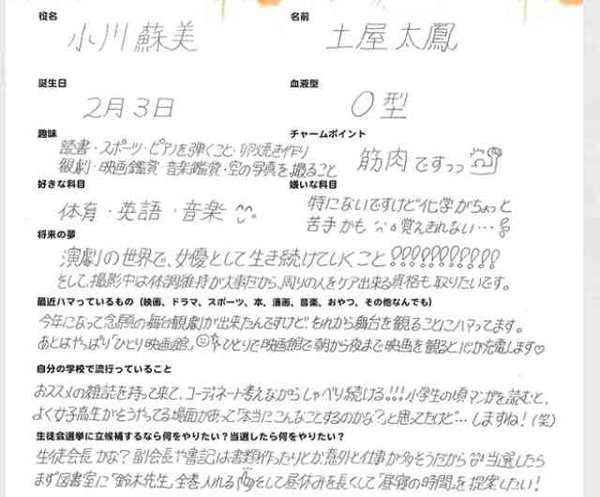 役名
小川蘇美
名前
土屋太鳳
誕生日
2月3日
血液型
O型
趣味
読書・スポーツ・ピアノを弾くこと・卵焼き作り
観劇・映画鑑賞・音楽鑑賞・空の写真を撮ること
チャームポイント
筋肉ですっっ
好きな科目
体育・英語・音楽
嫌いな科目
特にないですけど化学がちょっと
苦手かも 覚えきれない…
将来の夢
演劇の世界で、女優として生き続けていくこと!!!!!!!!!!!
そして、撮影中は体調維持が大事だから、周りの人をケア出来る資格も取りたいです。
最近ハマっているもの(映画、ドラマ、スポーツ、本、漫画、音楽、おやつ、その他なんでも)
今年になって念願の舞台観劇が出来たんですけど、それから舞台を観ることにハマってます。
あとはやっぱり「ひとり映画館」ひとりで映画館で朝から夜まで映画を観ると心が充電します♡
自分の学校で流行っていること
おススメの雑誌を持って来て、コーディネート考えながらしゃべり続ける!!!小学生の頃マンガを読むと、
よく女子高生がそうやってる場面があって「本当にこんなことするのかな?」と思ってたけど…しますね!(笑)
生徒会選挙に立候補するなら何をやりたい?当選したら何をやりたい?
生徒会長かな?副会長や書記は書類作ったりとか意外と仕事が多そうだから 当選したら
まず図書室に「鈴木先生」全巻入れる そして昼休みを長くして「昼寝の時間」を提案したい!